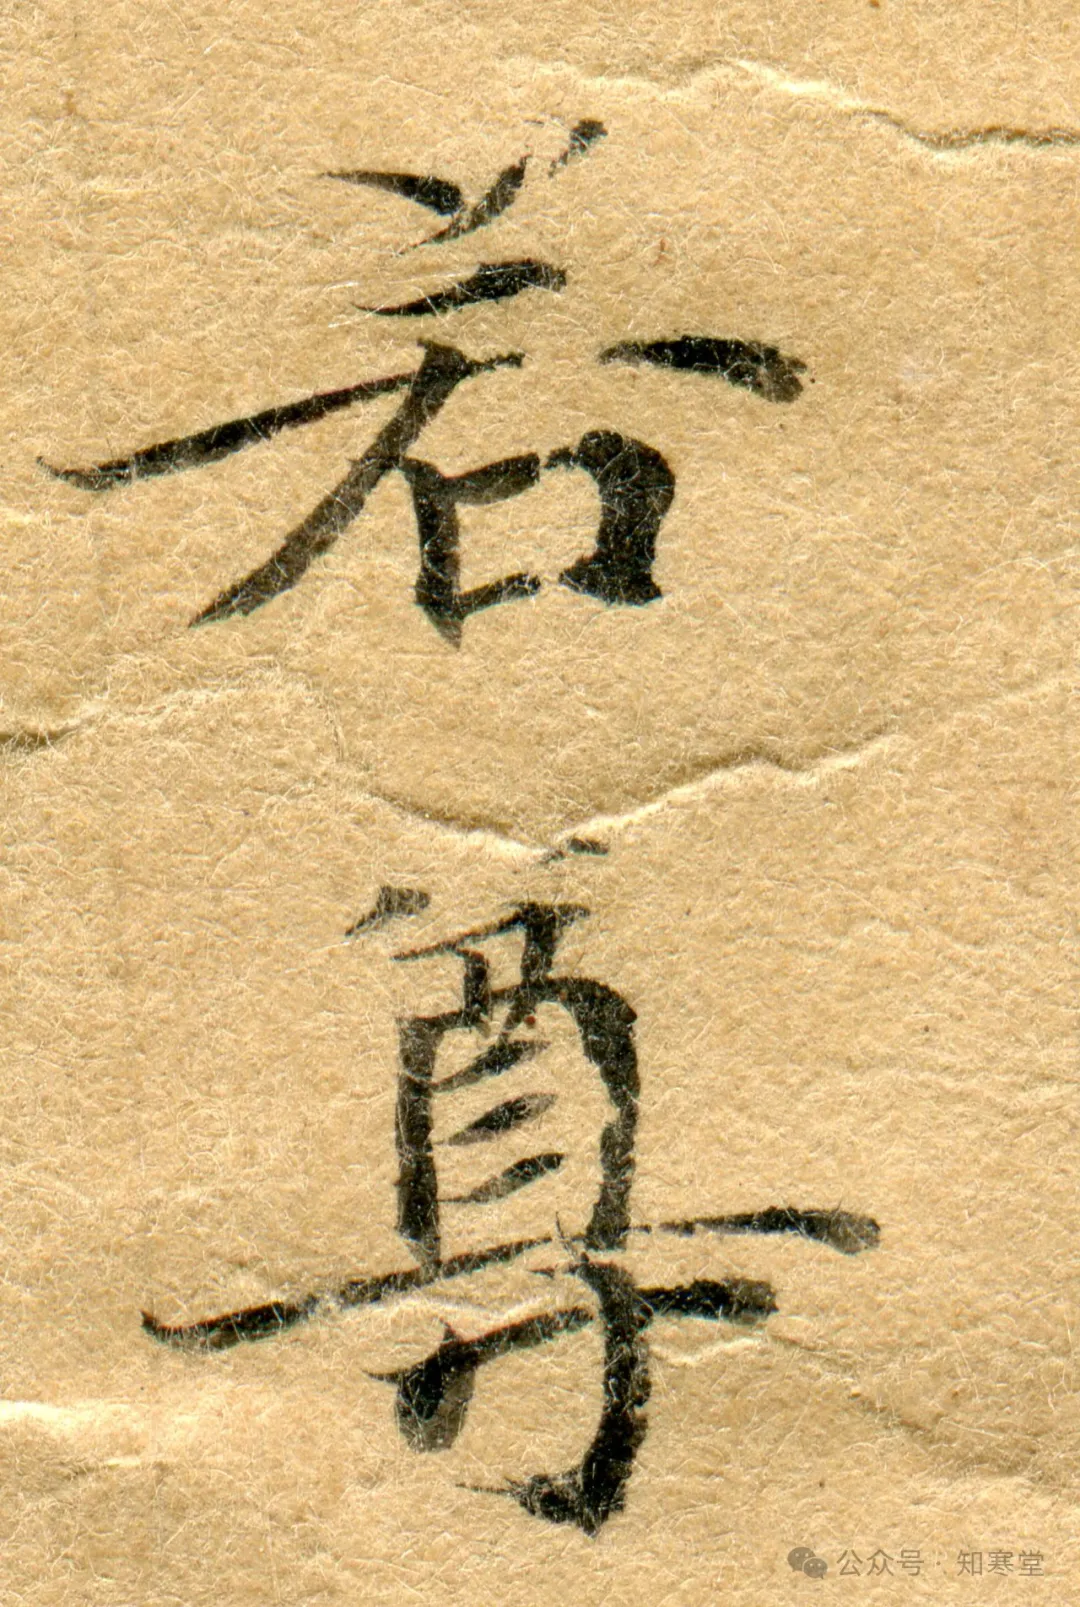 若尊
公众号·知寒堂